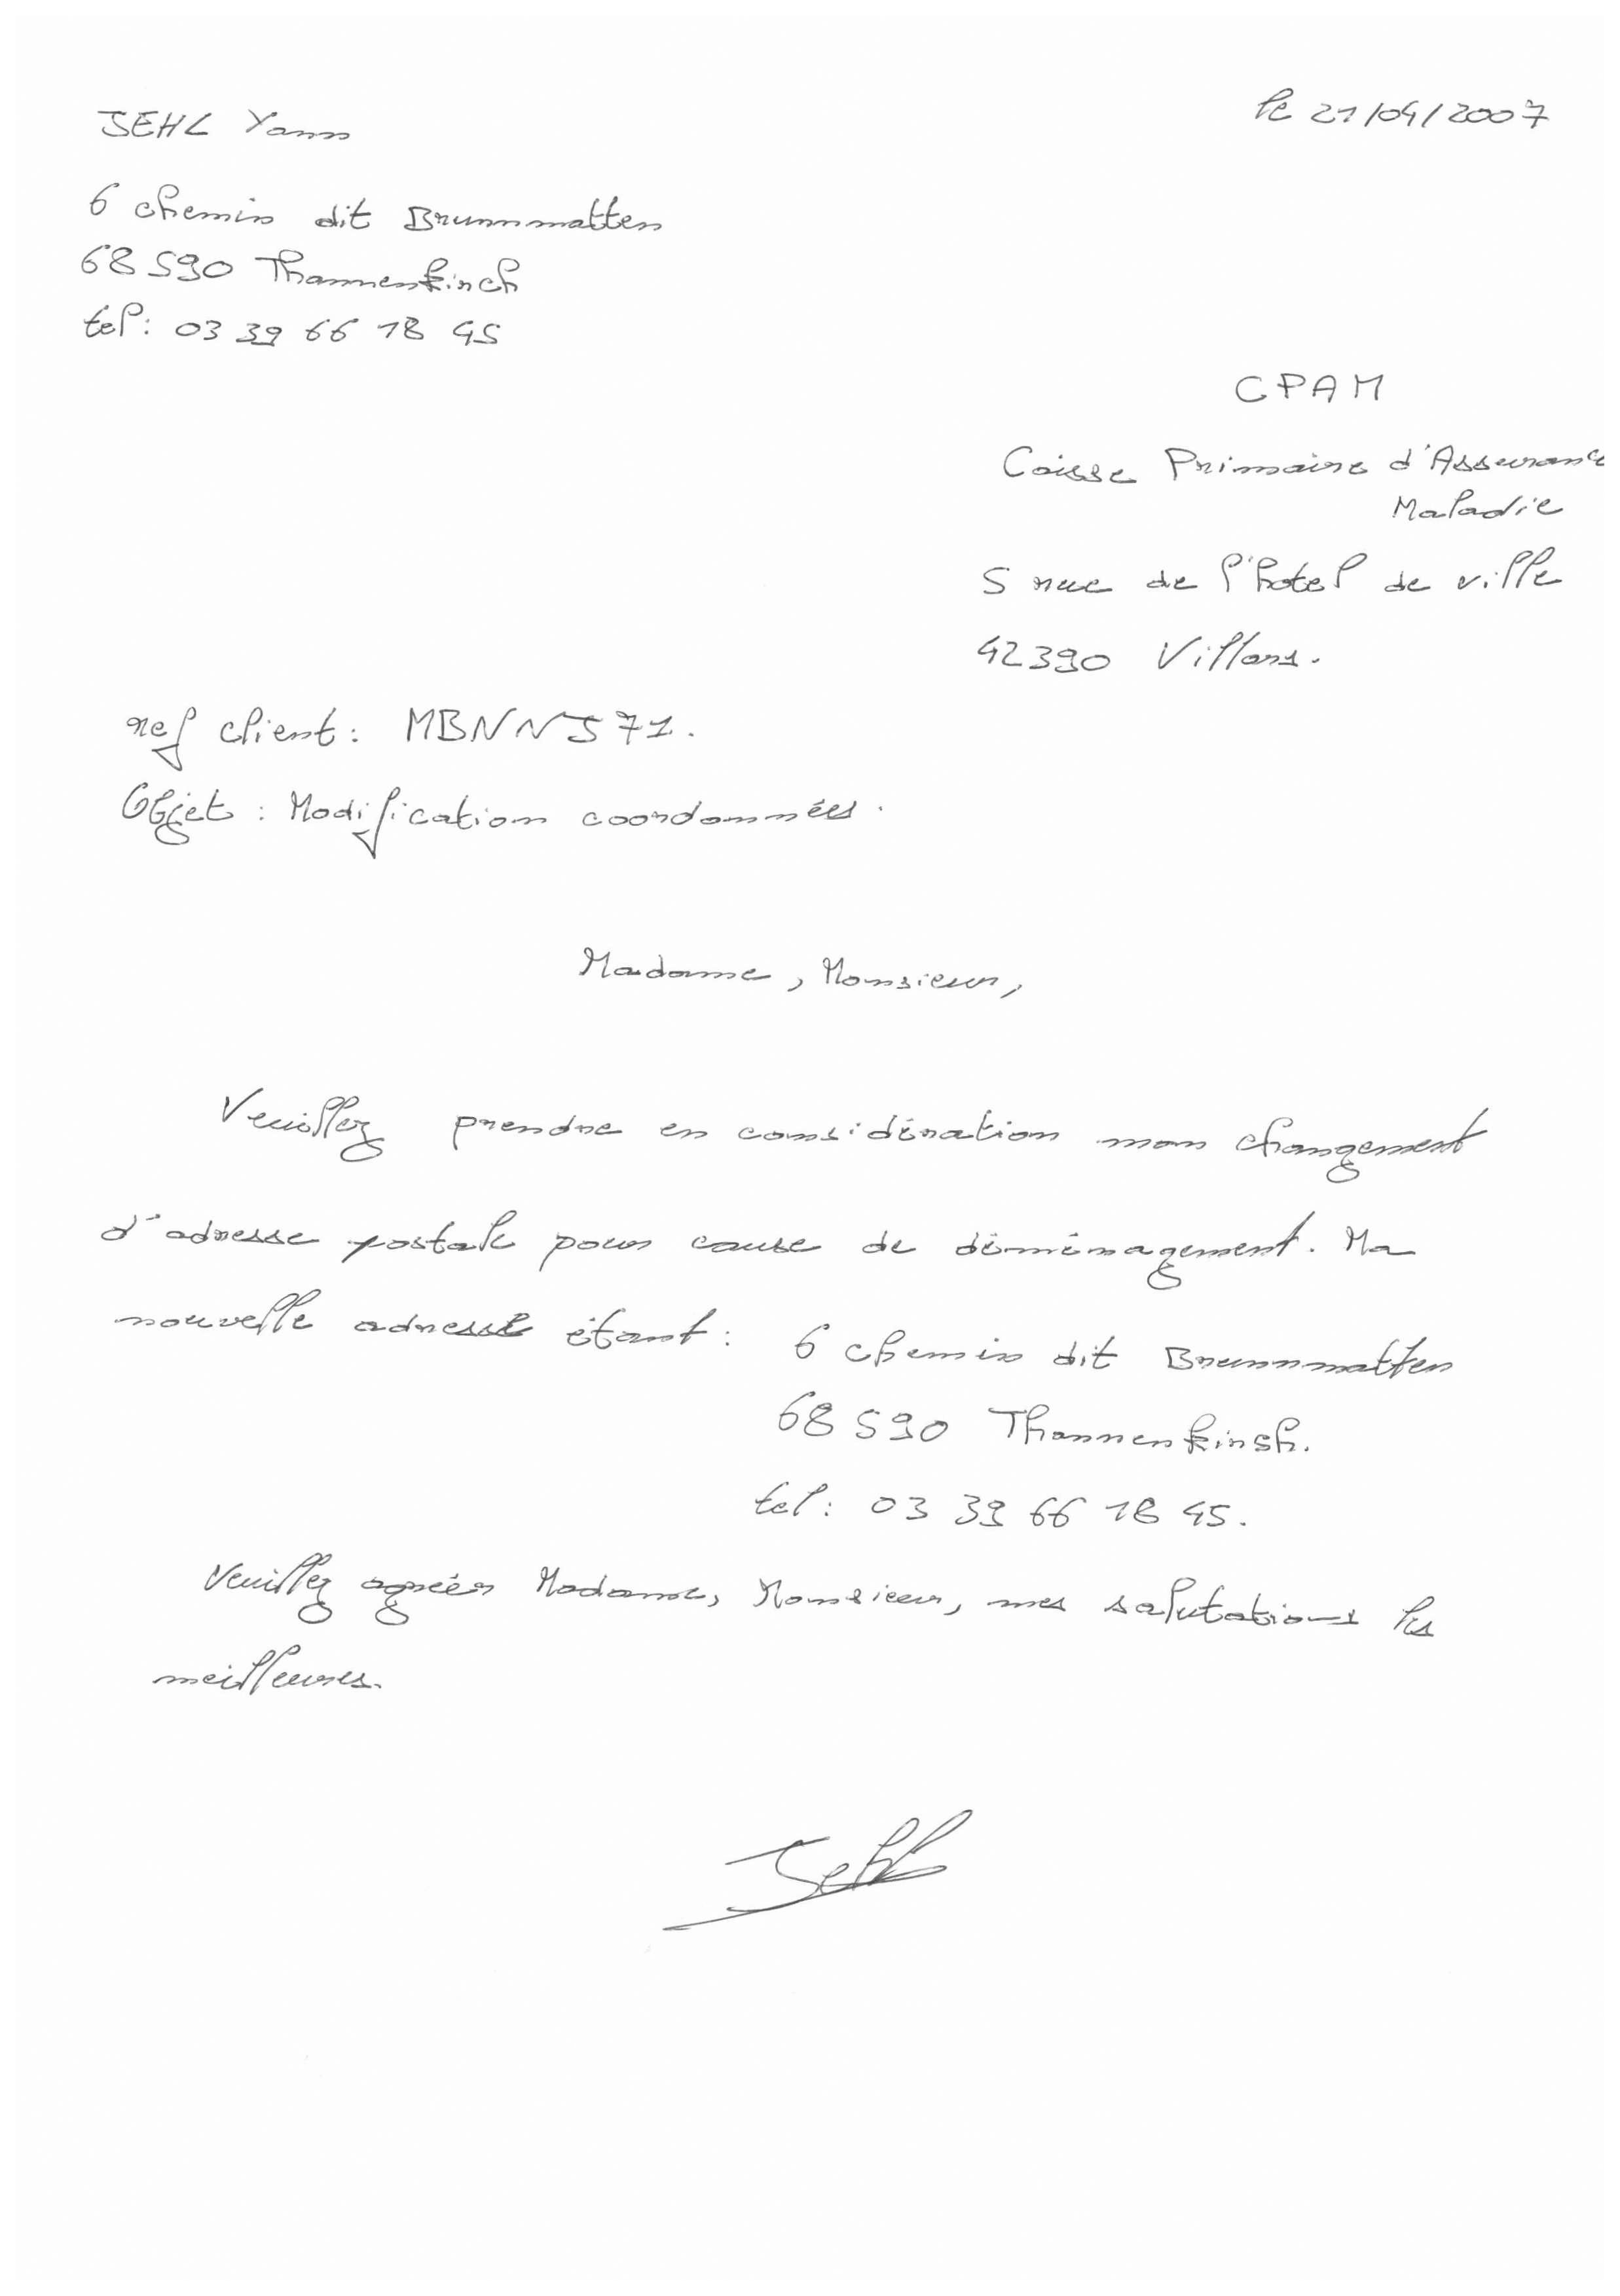 JEHL Yann
le 21/04/2007
6 chemin dit Brunnmatten
68 590 Thannenkirch
tel : 03 39 66 18 45
CPAM
Caisse Primaire d'Assurance
Maladie
5 rue de l'hotel de ville
42390 Villars.
ref client : MBNNJ71.
Objet : Modification coordonnées.
Madame, Monsieur,
Veuillez prendre en considération mon changement
d'adresse postale pour cause de déménagement. Ma
nouvelle adresse étant : 6 chemin dit Brunnmatten
68 590 Thannenkirsh.
tel : 03 39 66 18 45.
Veuillez agréer Madame, Monsieur, mes salutations les
meilleures.
Jehl